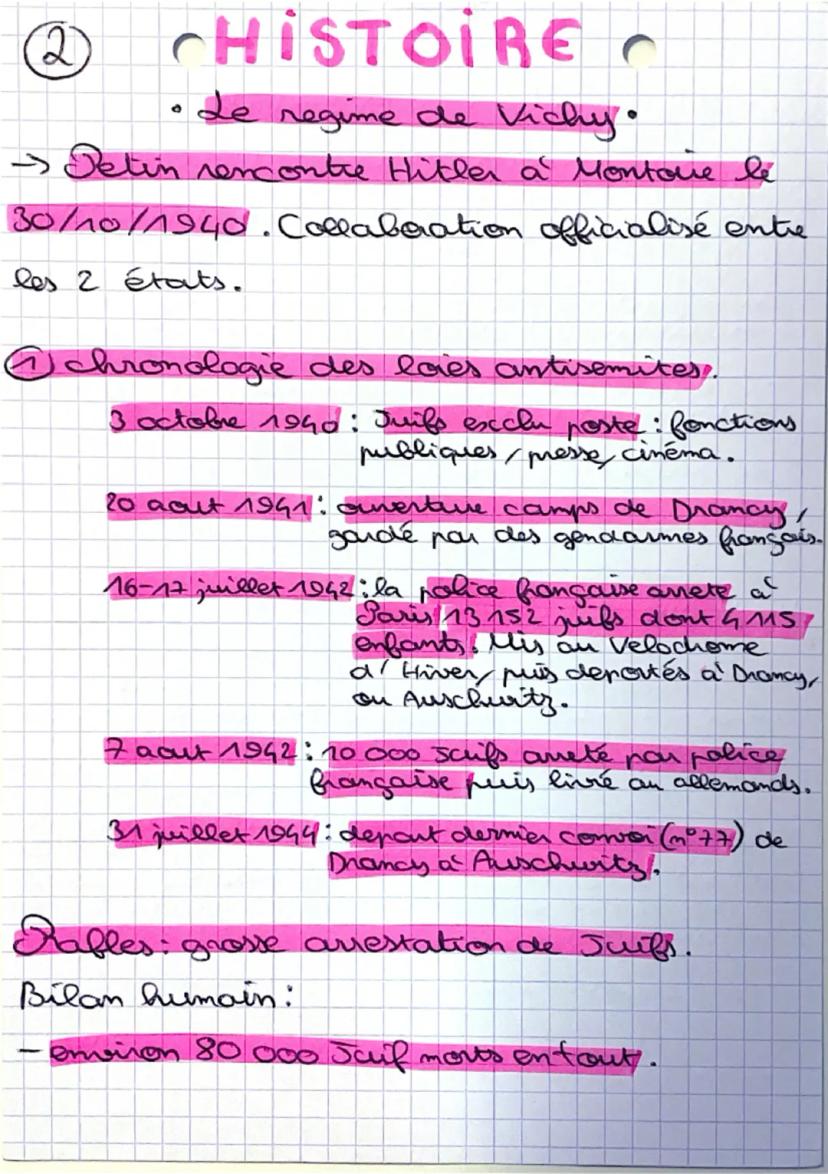 2
HiSTOiRE
• Le regime de Vichy •
→ Petin rencontre Hitler à Montoire le
30/10/1940. Collaboration officialisé entre
les 2 états.
1 chronologie des loies antisemites.
3 octobre 1940 : Juifs exclu poste : fonctions
publiques / presse / cinéma.
20 aout 1941 : ouverture camps de Drancy,
gardé par des gendarmes français.
16-17 juillet 1942 : la police française arrete à
Paris 13 152 juifs dont 4 115
enfants. Mis au Velodrome
d'Hiver, puis deportés à Drancy,
ou Auschwitz.
7 aout 1942 : 10 000 Juifs arreté par police
française puis livré au allemands.
31 juillet 1944 : depart dernier convoi (n°77) de
Drancy à Auschwitz.
Rafles : grosse arrestation de Juifs.
Bilan humain :
- environ 80 000 Juif morts en tout.